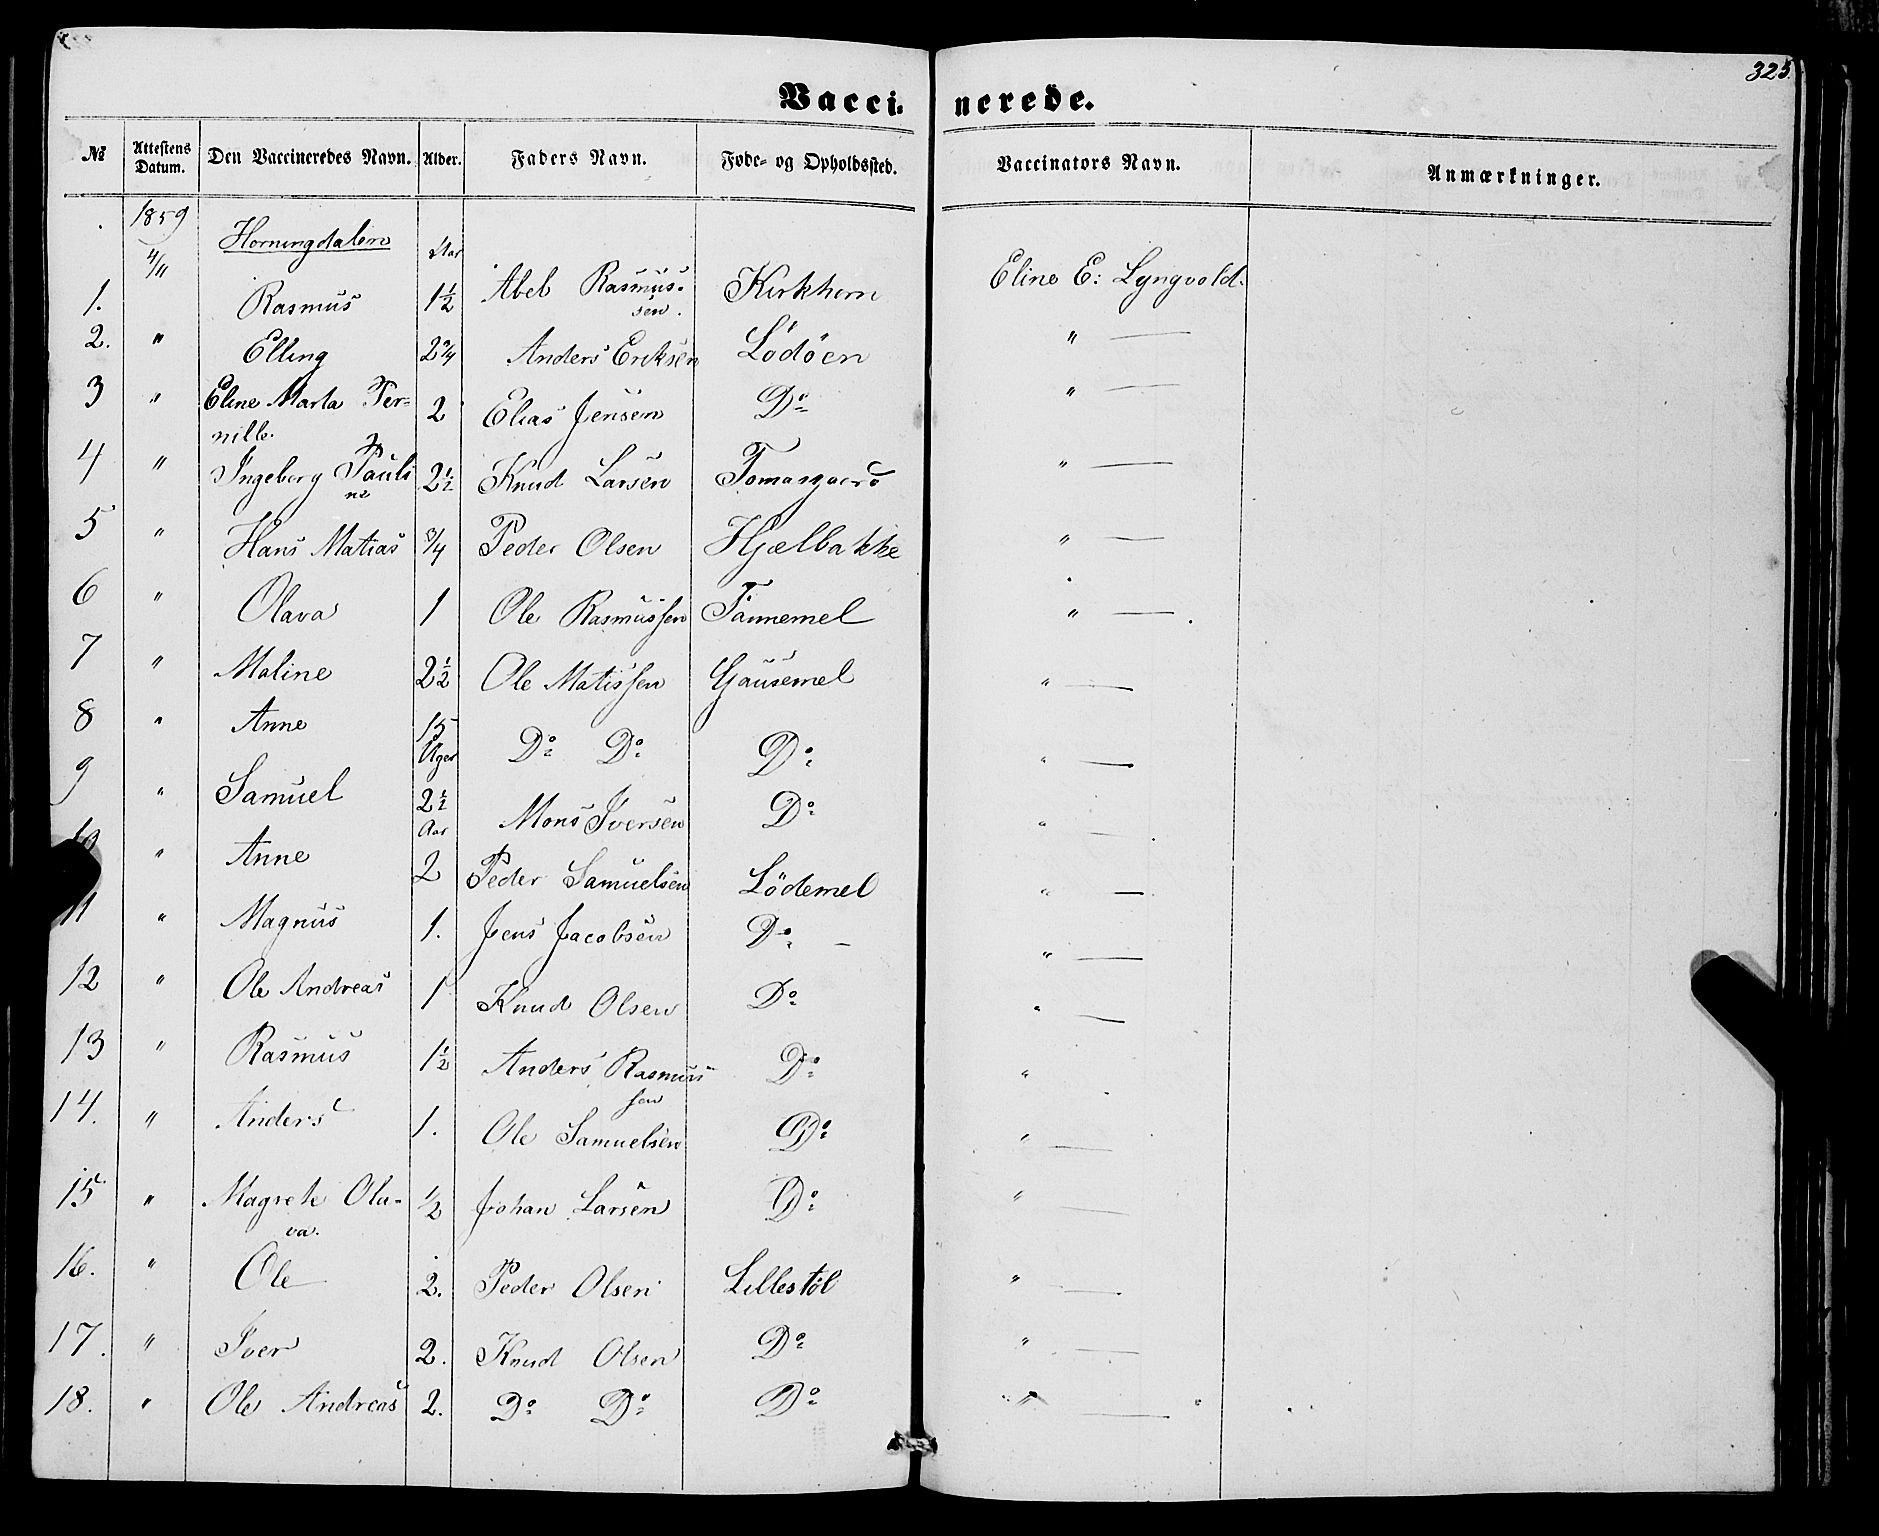 325.
Vacci- nerede.
№ Attestens Datum. Den Vaccineredes Navn. Alder. Faders Navn. Føde- og Opholdssted. Vaccinators Navn. Anmærkninger.
1859 Horningdalen Aar
4/11
1. Rasmus 1½ Abel Rasmus- Kirkhorn Eline E: Lyngvold.
sen.
2. " Elling 2¾ Anders Eriksen Lödöen " —
3 " Eline Marta Per= 2 Elias Jensen Do " —
nille.
4 " Ingeborg Pauli 2½ Knud Larsen Tomasgaard " —
ne
5 " Hans Matias ¾ Peder Olsen Hjelbakke " —
6 " Olava 1 Ole Rasmussen Tannemel " —
7 " Maline 2½ Ole Matissen Gausemel " —
8 " Anne 15 Uger Do Do Do " —
9 " Samuel 2½ Aar Mons Iversen Do " —
10 " Anne 2 Peder Samuelsen Lödemel " —
11 " Magnus 1. Jens Jacobsen Do — " —
12 " Ole Andreas 1 Knud Olsen Do " —
13 " Rasmus 1½ Anders Rasmus Do "
sen
14. " Anders 1. Ole Samuelsen Do " —
15 " Magrete Ola- ½ Johan Larsen Do " —
va.
16. " Ole 2. Peder Olsen Lillestöl " —
17. " Iver 2. Knud Olsen Do " —
18. " Ole Andreas 2. Do Do Do " —